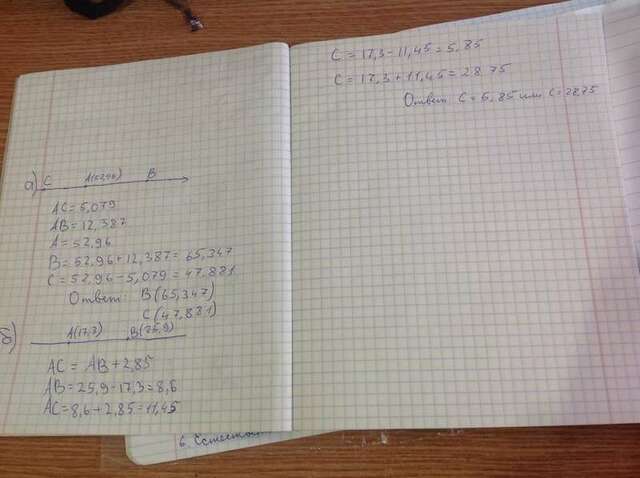 а) C A(52,96) B
AC = 5,079
AB = 12,387
A = 52,96
B = 52,96 + 12,387 = 65,347
C = 52,96 - 5,079 = 47,881
Ответ: B(65,347)
C(47,881)
б) A(17,3) B(25,9)
AC = AB + 2,85
AB = 25,9 - 17,3 = 8,6
AC = 8,6 + 2,85 = 11,45
C = 17,3 - 11,45 = 5,85
C = 17,3 + 11,45 = 28,75
Ответ: C = 5,85 или C = 28,75
6. Естеств